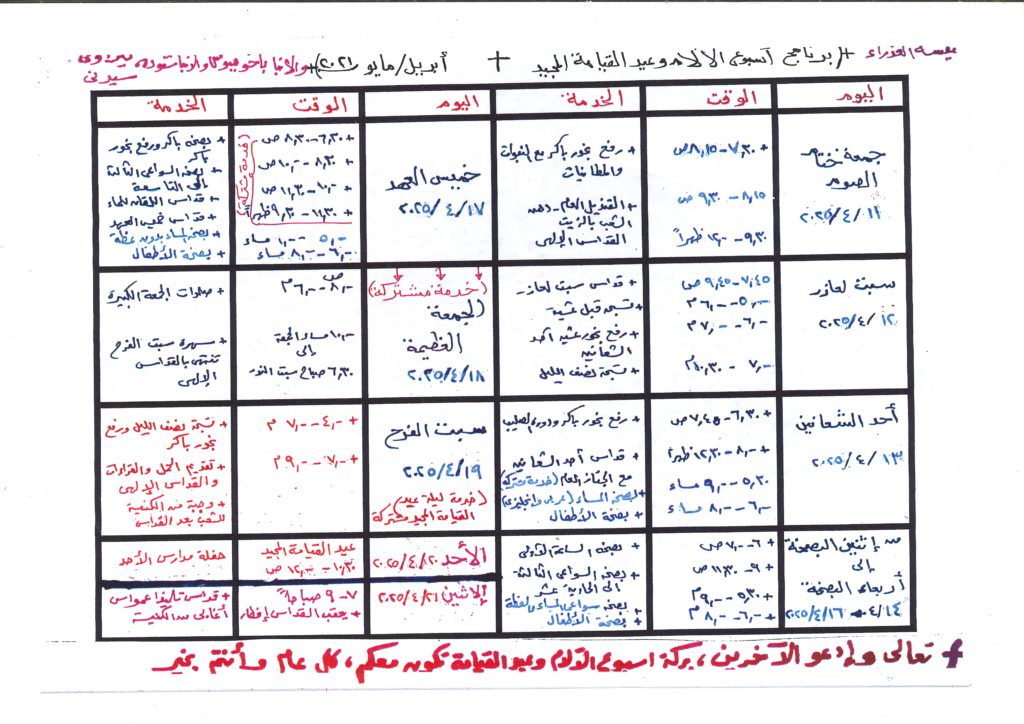 كنيسة العذراء + (برنامج أسبوع الآلام وعيد القيامة المجيد + أبريل/مايو ٢٠٢١) + والأنبا باخوميوس والأنبا شنوده بيروى
سيدنى
اليوم
الوقت
الخدمة
جمعة ختام
الصوم
٢٠٢٥/٤/١١
+ ٧,٣٠-٨,١٥ ص
٨,١٥ - ٩,٣٠ ص
٩,٣٠ - ١٢,٠٠ ظهراً
+ رفع بخور باكر مع النبوات
والمطانيات
+ القنديل العام - دهن
الشعب بالزيت
القداس الإلهى
سبت لعازر
٢٠٢٥/٤/١٢
٧,٤٥-٩,٤٥ ص
٥,٠٠-٦,٠٠ م
٦,٠٠-٧,٠٠ م
٧,٠٠ - ١٠,٣٠ م
+ قداس سبت لعازر
+ تسبحة قبل عشية
+ رفع بخور عشية أحد
الشعانين
+ تسبحة نصف الليل
أحد الشعانين
٢٠٢٥/٤/١٣
+ ٦,٣٠-٧,٤٥ ص
+ ٨,٠٠-١٢,٣٠ ظهراً
٥,٣٠ - ٩,٠٠ مساء
٦,٠٠ - ٨,٠٠ مساء
+ رفع بخور باكر ودورة الصليب
+ قداس أحد الشعانين
مع الجناز العام (خدمة مشتركة)
+ بصخة المساء (عربى وانجليزى)
+ بصخة الأطفال
من إثنين البصخة
إلى
أربعاء البصخة
٤/١٤ - ٢٠٢٥/٤/١٦
+ ٦ - ٧,٠٠ ص
+ ٩ - ١١,٣٠ ص
+ ٥,٣٠ - ٩,٠٠ م
+ ٦,٠٠ - ٨,٠٠ م
+ بصخة الساعة الأولى
+ بصخة السواعى الثالثة
إلى الحادية عشر
+ بصخة سواعى المساء والعظة
+ بصخة الأطفال
اليوم
الوقت
الخدمة
خميس العهد
٢٠٢٥/٤/١٧
+ ٦,٣٠-٨,٣٠ ص
+ ٨,٣٠ - ١٠,٠٠ ص
+ ١٠,٠٠ - ١١,٣٠ ص
+ ١١,٣٠ - ٩,٣٠ ظهراً
(خدمة مشتركة)
٥,٠٠ - ١,٠٠ مساء
٦,٠٠ - ٨,٠٠ مساء
+ بصخة باكر ورفع بخور
باكر
+ بصخة السواعى الثالثة
إلى التاسعة
+ قداس اللقان للماء
+ قداس خميس العهد
+ بصخة المساء بدون عظة
+ بصخة الأطفال
(خدمة مشتركة)
الجمعة
العظيمة
٢٠٢٥/٤/١٨
ص
٨,٠٠ - ٦,٠٠ م
١٠,٠٠ مساء الجمعة
إلى
٦,٣٠ صباح سبت النور
+ صلوات الجمعة الكبيرة
+ سهرة سبت الفرح
تنتهى بالقداس
الإلهى
سبت الفرح
٢٠٢٥/٤/١٩
(خدمة ليلة عيد
القيامة المجيد مشتركة
+ ٤,٠٠ - ٧,٠٠ م
+ ٧,٠٠ - ٩,٠٠ م
+ تسبحة نصف الليل ورفع
بخور باكر
+ تقديم الحمل والقراءات
والقداس الإلهى
+ وجبة من الكنيسة
للشعب بعد القداس
الأحد ٢٠٢٥/٤/٢٠
عيد القيامة المجيد
١٠,٣٠ - ١٢,٠٠ ص
حفلة مدارس الأحد
الإثنين ٢٠٢٥/٤/٢١
٧ - ٩ صباحاً
+ يعقب القداس إفطار
+ قداس تلميذا عمواس
أغابى من الكنيسة
+ تعالى وادعو الآخرين، بركة اسبوع الآلام وعيد القيامة تكون معكم، كل عام وأنتم بخير